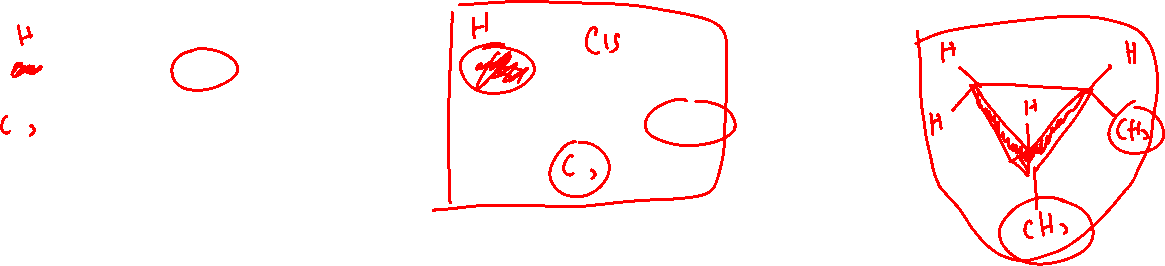 H
C,
H
Cis
C,
H
H
H
H
CH3
CH3